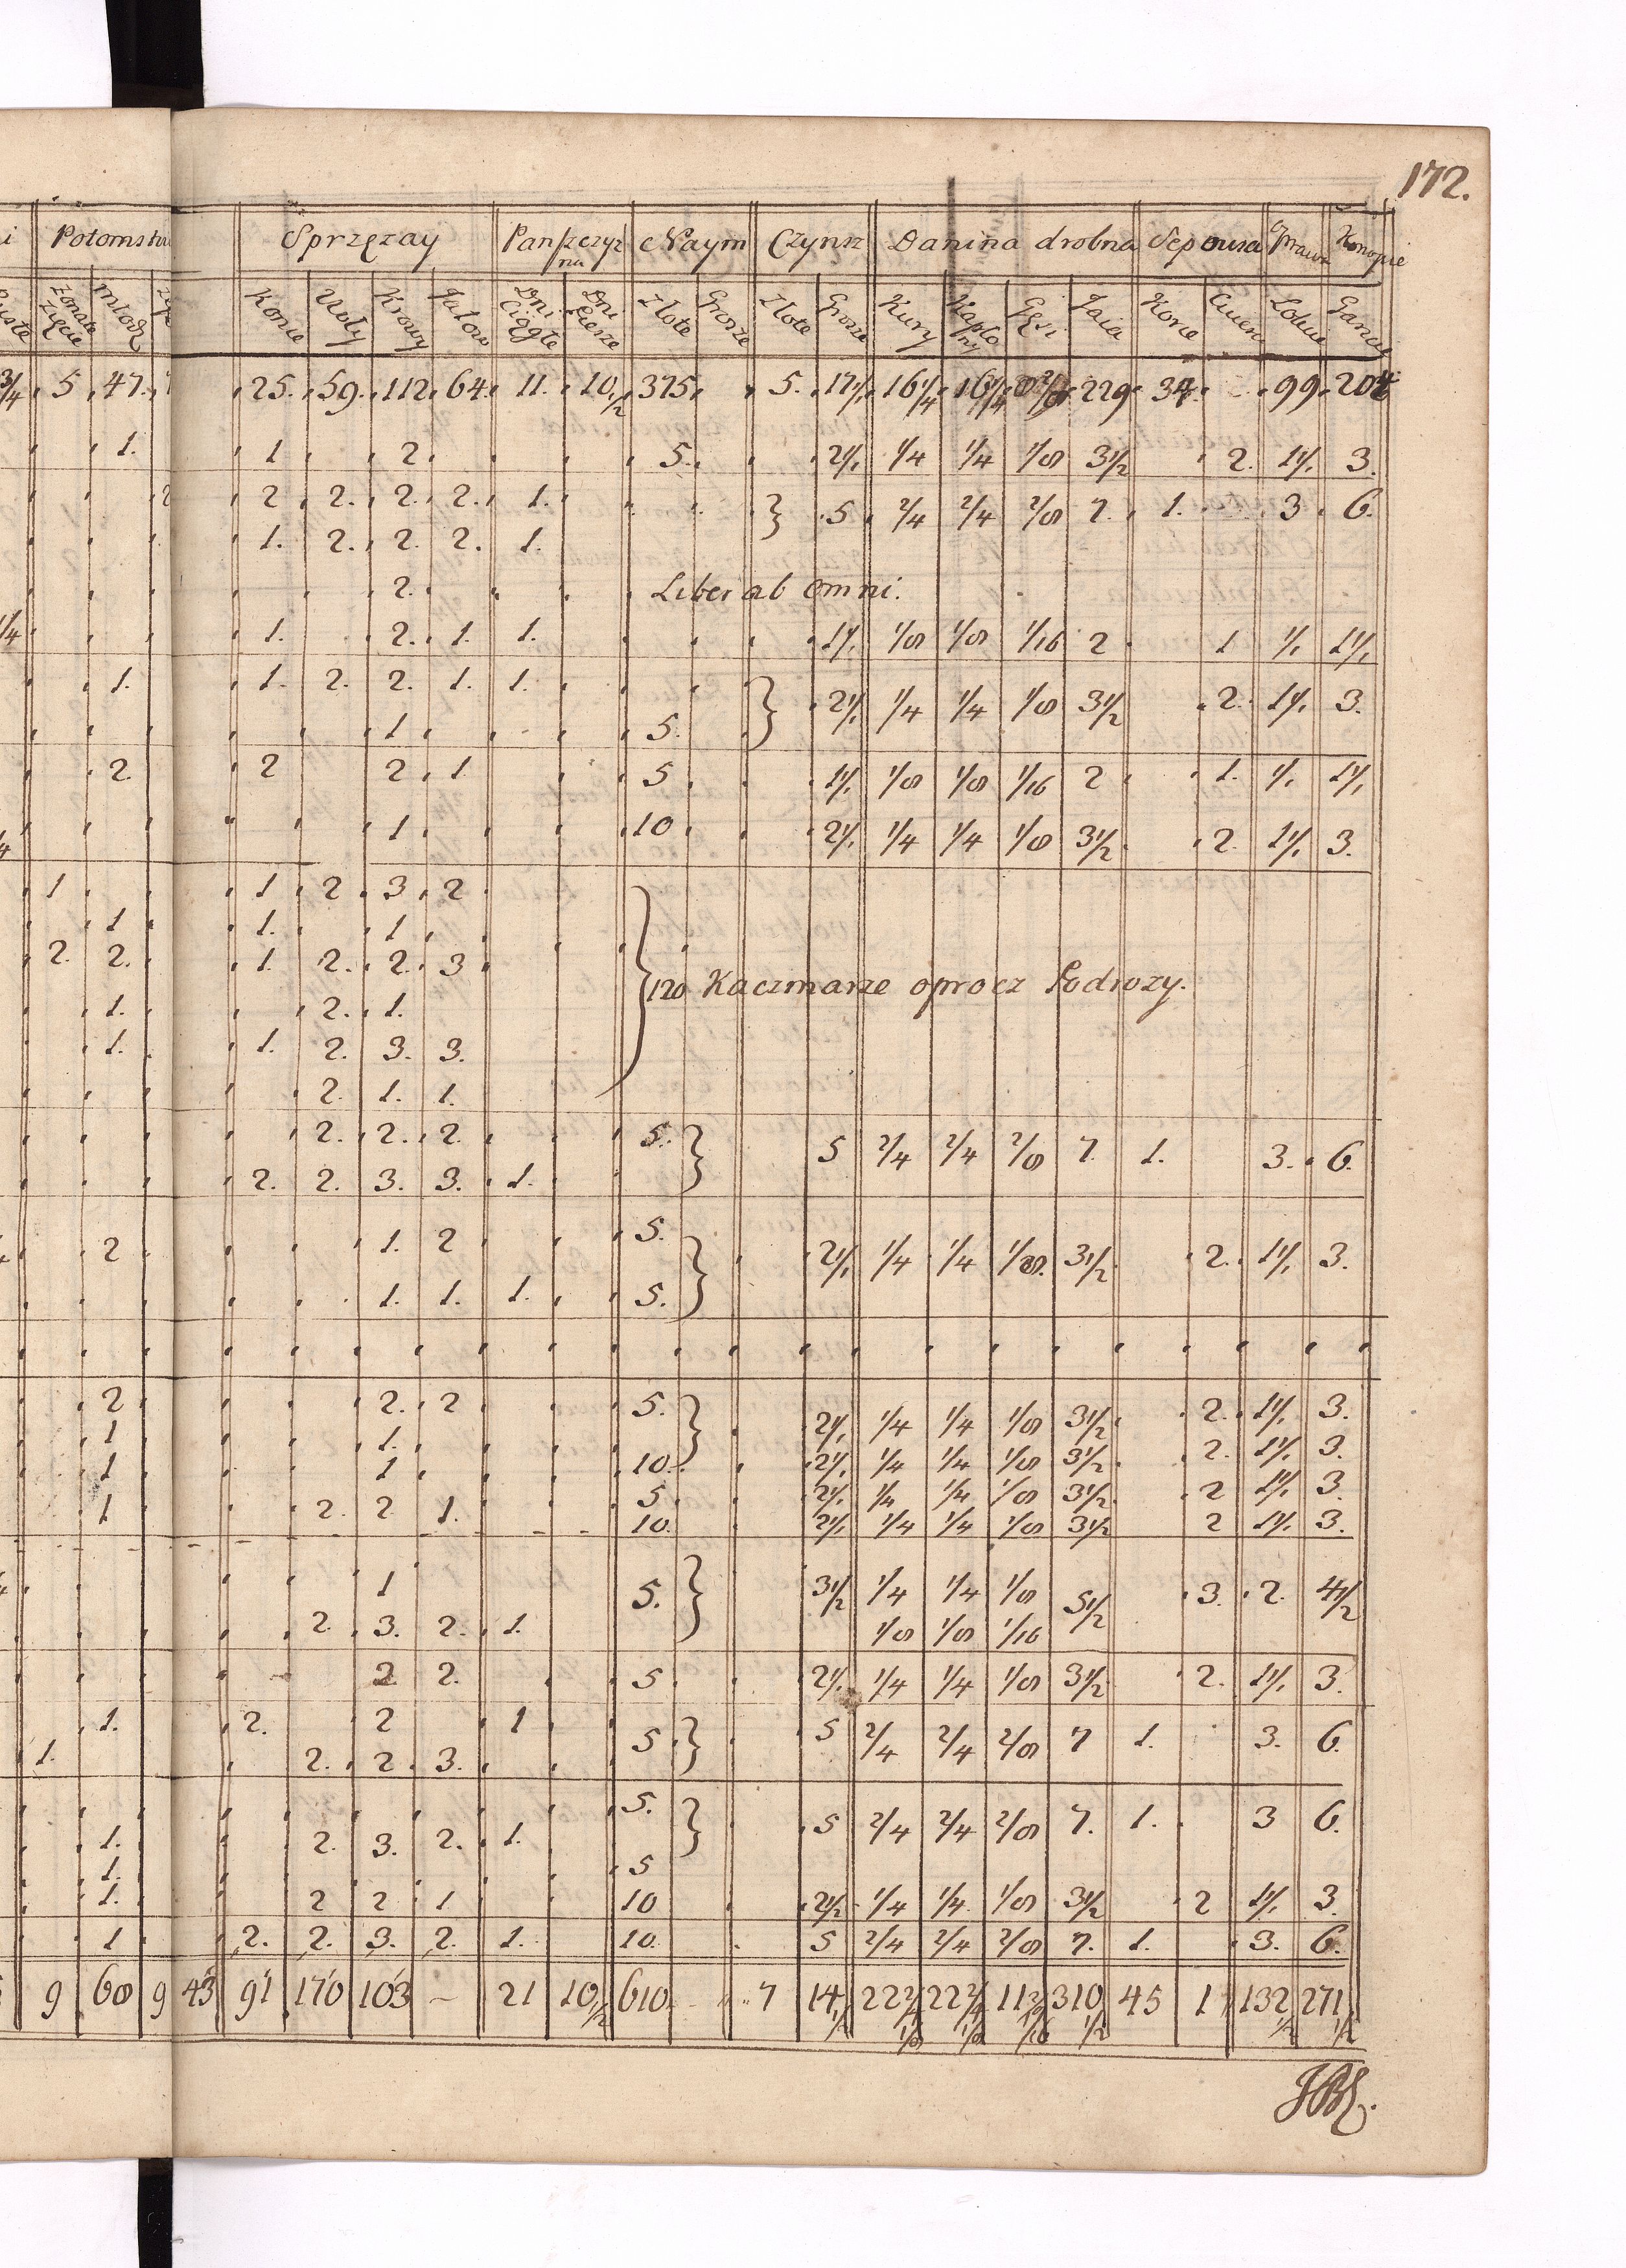 172.
Potomstw Sprzężay Panszczyzna Naym Czynsz Danina drobna Sep owsa Konopie
Żonate Zięcie Młodz Konie Woły Krowy Jałow Dni Ciągłe Dni Piesze Złote Grosze Złote Grosze Kury Kapłony Gęsi Jaia Korce Cwier Łokcie Garnce
3/4 5 47. 25. 59. 112. 64. 11. 10.1/2 375 5. 17 1/2 16 1/4 16 1/4 229 34. 99. 204
1. 1 2. 5. 2 1/2 1/4 1/4 1/8 3 1/2 2. 1 1/2 3.
2 2 2. 2. 2. 1. } 5 2/4 2/4 2/8 7. 1. 3 6.
1. 2. 2. 2. 1.
2. Liber ab omni.
1/4 1. 2. 1. 1. 1 1/2 1/8 1/8 1/16 2 1 1/2 1 1/2
1. 1. 2. 2. 1. 1. } 2 1/2 1/4 1/4 1/8 3 1/2 2. 1 1/2 3.
1 5.
2. 2 2 1 5 1 1/2 1/8 1/8 1/16 2 1. 1/2 1 1/2
1. 10 2 1/2 1/4 1/4 1/8 3 1/2 2. 1 1/2 3.
1 1 2 3 2
1 1. 1
2. 2. 1. 2. 2. 3 } 120 Kaczmarze oprocz Podrozy.
1. 2. 1.
1. 1. 2. 3. 3.
2. 1. 1.
2. 2. 2. 5. } 5 2/4 2/4 2/8 7. 1. 3. 6.
2. 2. 3. 3. 1.
2 1. 2 5. } 2 1/2 1/4 1/4 1/8 3 1/2 2. 1 1/2 3.
1. 1. 1. 5.
2 2. 2 5. } 2 1/2 1/4 1/4 1/8 3 1/2 2. 1 1/2 3.
1 1. 10. 2 1/2 1/4 1/4 1/8 3 1/2 2. 1 1/2 3.
1 1 5 2 1/2 1/4 1/4 1/8 3 1/2 2 1 1/2 3
1 2. 2 1. 10. 2 1/2 1/4 1/4 1/8 3 1/2 2 1 1/2 3.
1 5. } 3 1/2 1/4 1/4 1/8 5 1/2 3. 2. 4 1/2
2. 3. 2. 1. 1/8 1/8 1/16
2 2. 5 2 1/2 1/4 1/4 1/8 3 1/2 2. 1 1/2 3.
1. 2. 2 1 5 } 5 2/4 2/4 2/8 7 1. 3. 6.
1. 2. 2. 3.
5. } 5 2/4 2/4 2/8 7. 1. 3 6.
1. 2. 3. 2. 1.
1. 5
1. 2 2 1 10 2 1/2 1/4 1/4 1/8 3 1/2 2 1 1/2 3.
1 2. 2. 3. 2. 1. 10. 5 2/4 2/4 2/8 7. 1. 3. 6.
9 68 9 43 91 170 103 – 21 10 1/2 610 7 14 1/2 22 2/4 1/8 22 2/4 1/8 11 310 1/2 45 1 132 1/2 271 1/2